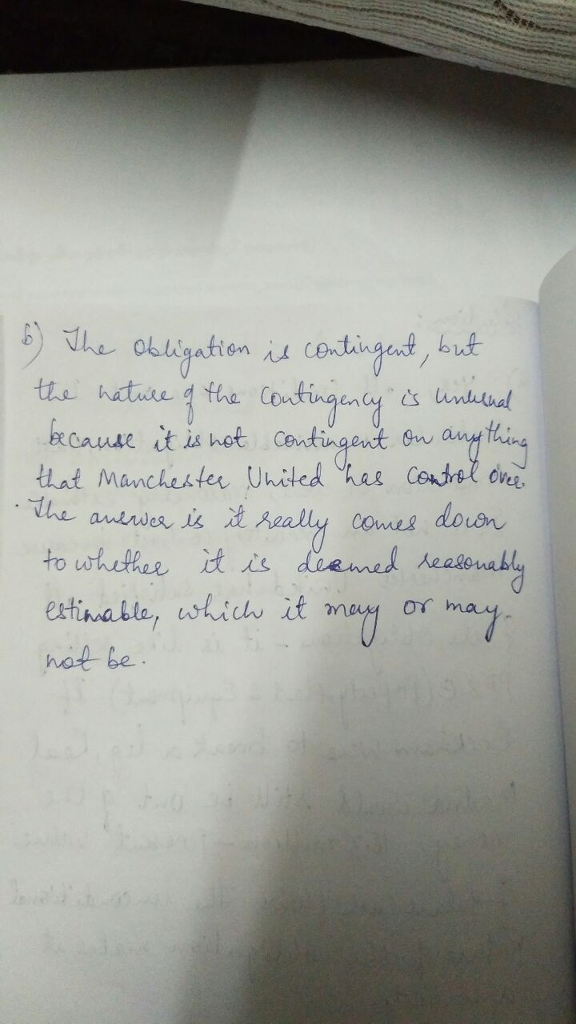 b) The obligation is contingent, but
the nature of the contingency is unusual
because it is not contingent on anything
that Manchester United has control over.
The answer is it really comes down
to whether it is deemed reasonably
estimable, which it may or may
not be.